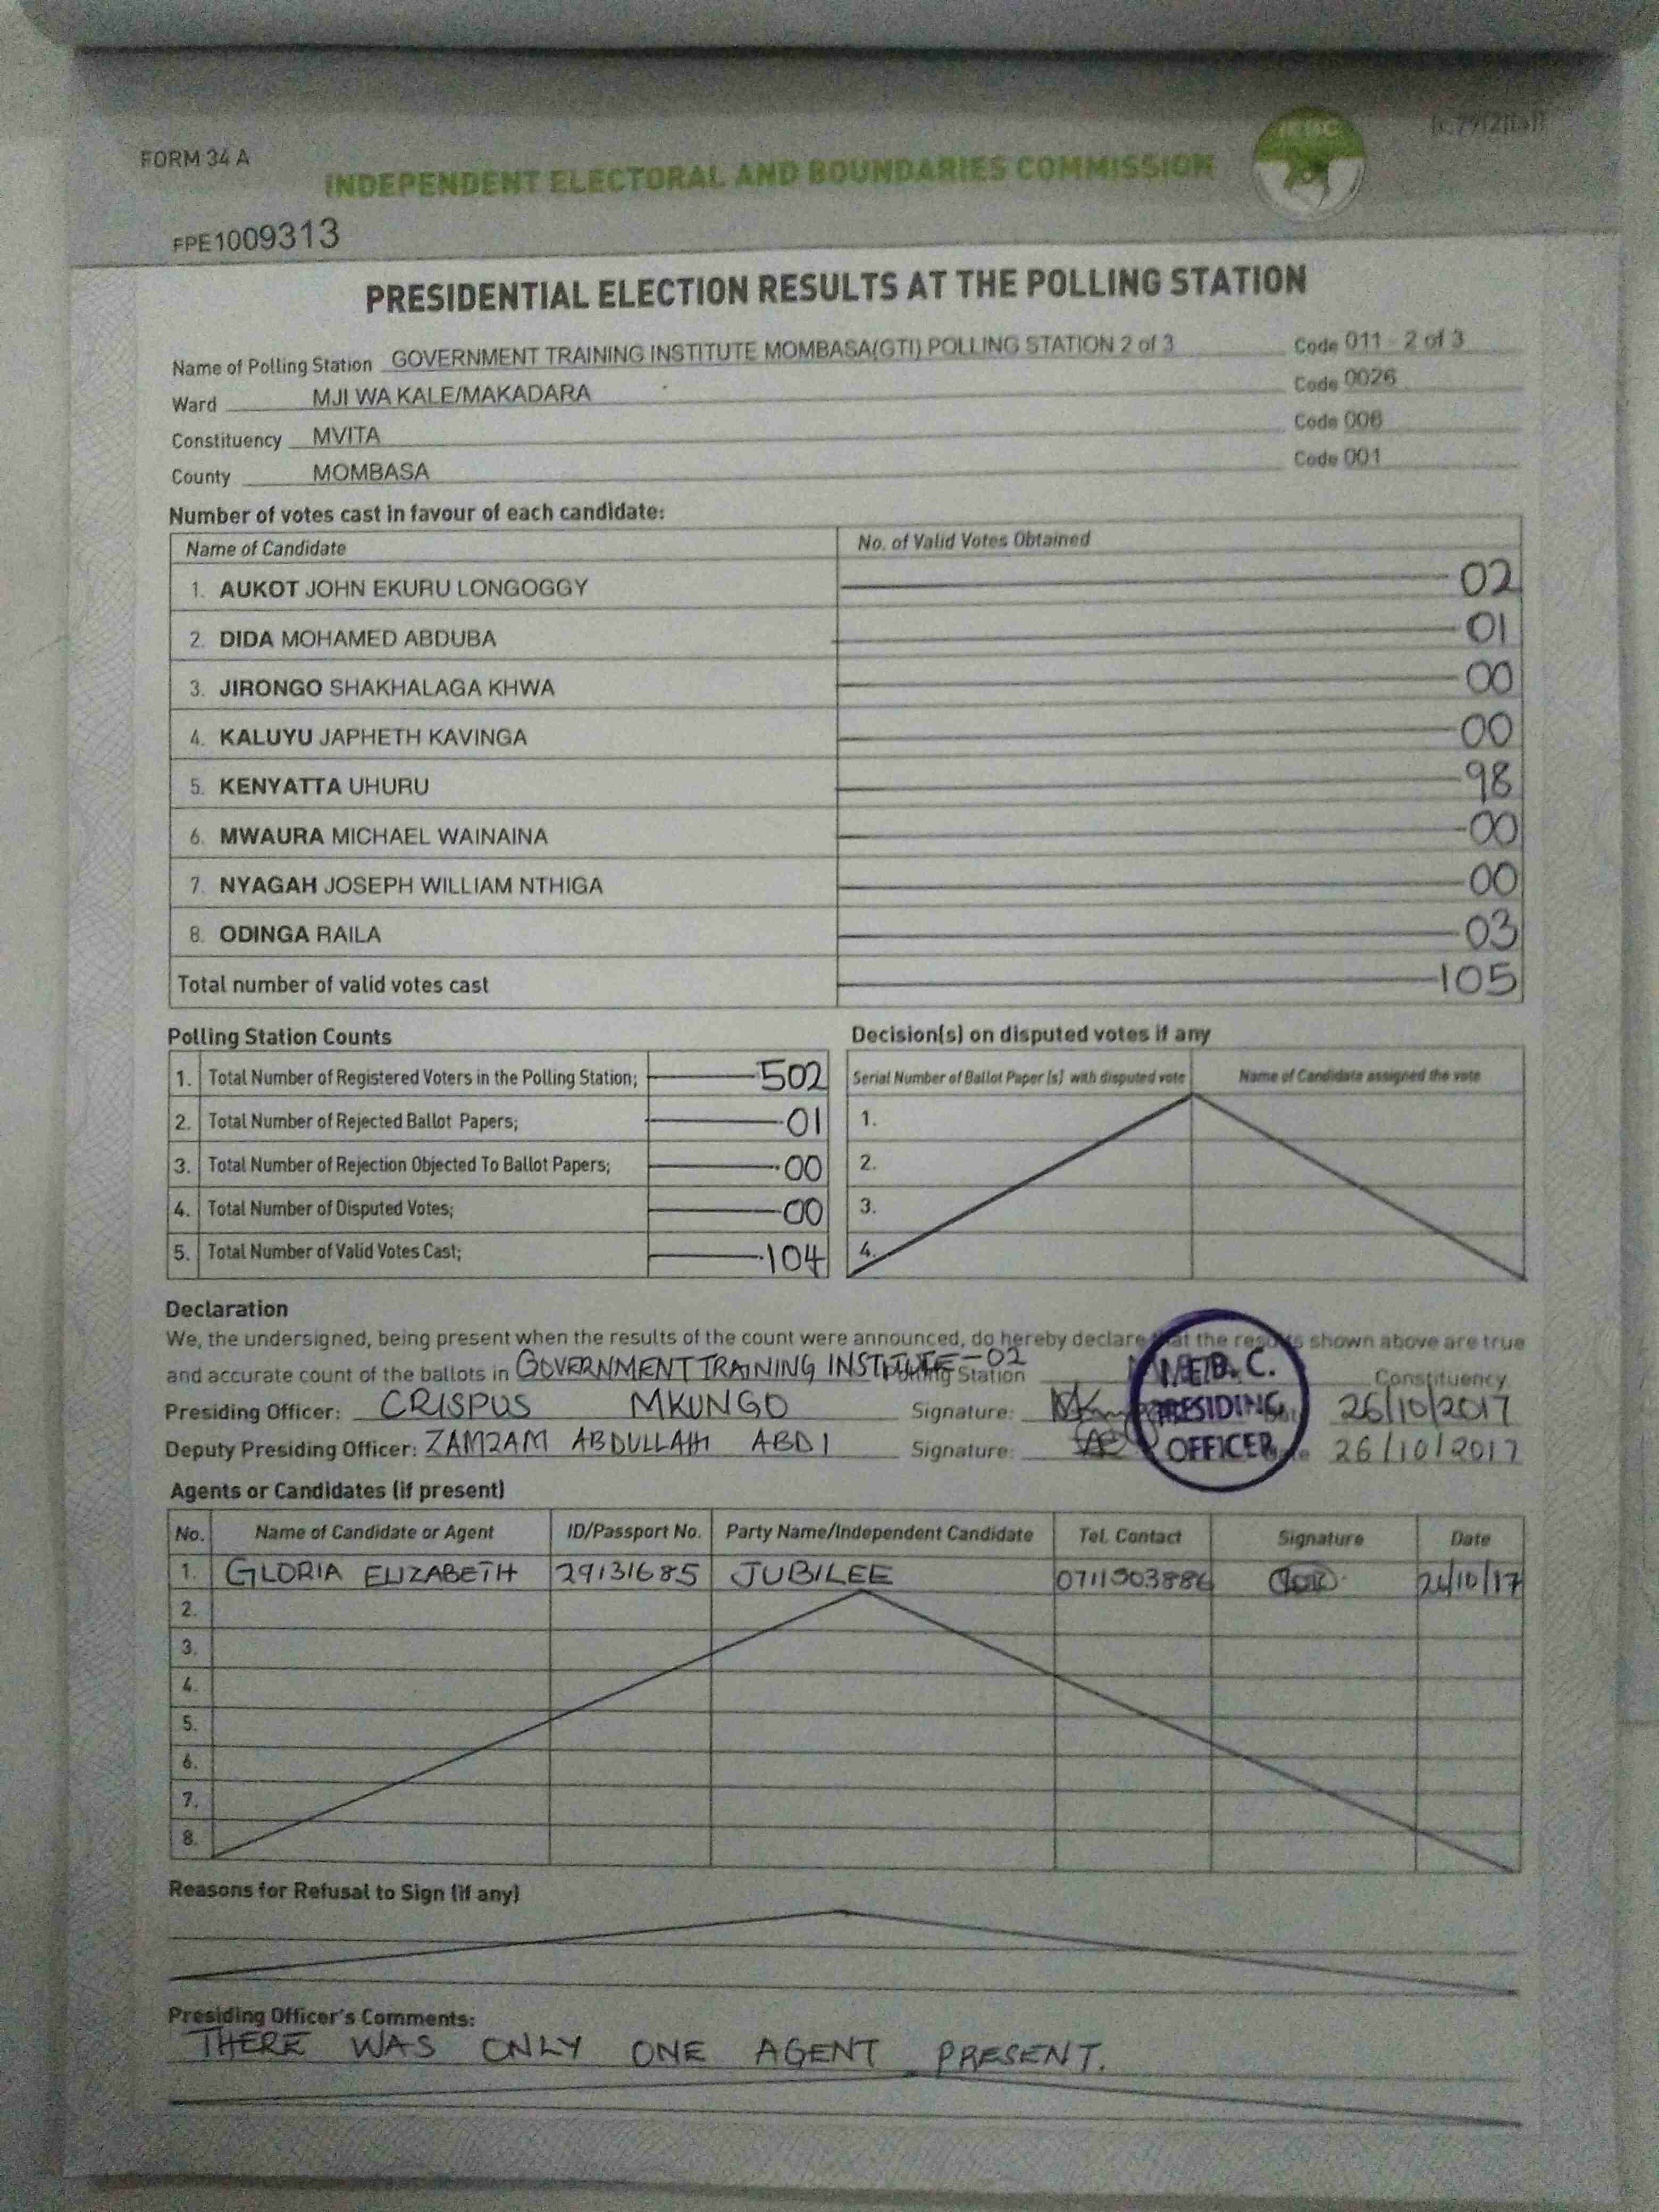 FORM 34 A
INDEPENDENT ELECTORAL AND BOUNDARIES COMMISSION
IEBC
FPE1009313
PRESIDENTIAL ELECTION RESULTS AT THE POLLING STATION
Name of Polling Station GOVERNMENT TRAINING INSTITUTE MOMBASA(GTI) POLLING STATION 2 of 3 Code 011 - 2 of 3
Ward MJI WA KALE/MAKADARA Code 0026
Constituency MVITA Code 006
County MOMBASA Code 001
Number of votes cast in favour of each candidate:
Name of Candidate No. of Valid Votes Obtained
1. AUKOT JOHN EKURU LONGOGGY 02
2. DIDA MOHAMED ABDUBA 01
3. JIRONGO SHAKHALAGA KHWA 00
4. KALUYU JAPHETH KAVINGA 00
5. KENYATTA UHURU 98
6. MWAURA MICHAEL WAINAINA 00
7. NYAGAH JOSEPH WILLIAM NTHIGA 00
8. ODINGA RAILA 03
Total number of valid votes cast 105
Polling Station Counts
1. Total Number of Registered Voters in the Polling Station; 502
2. Total Number of Rejected Ballot Papers; 01
3. Total Number of Rejection Objected To Ballot Papers; 00
4. Total Number of Disputed Votes; 00
5. Total Number of Valid Votes Cast; 104
Decision(s) on disputed votes if any
Serial Number of Ballot Paper (s) with disputed vote Name of Candidate assigned the vote
1.
2.
3.
4.
Declaration
We, the undersigned, being present when the results of the count were announced, do hereby declare that the results shown above are true
and accurate count of the ballots in GOVERNMENT TRAINING INSTITUTE-02 Polling Station Constituency
Presiding Officer: CRISPUS MKUNGO Signature: 26/10/2017
Deputy Presiding Officer: ZAMZAM ABDULLAHI ABDI Signature: Date 26/10/2017
I.E.B.C.
PRESIDING
OFFICER
Agents or Candidates (if present)
No. Name of Candidate or Agent ID/Passport No. Party Name/Independent Candidate Tel. Contact Signature Date
1. GLORIA ELIZABETH 29131685 JUBILEE 0711503886 26/10/17
2.
3.
4.
5.
6.
7.
8.
Reasons for Refusal to Sign (if any)
Presiding Officer's Comments:
THERE WAS ONLY ONE AGENT PRESENT.